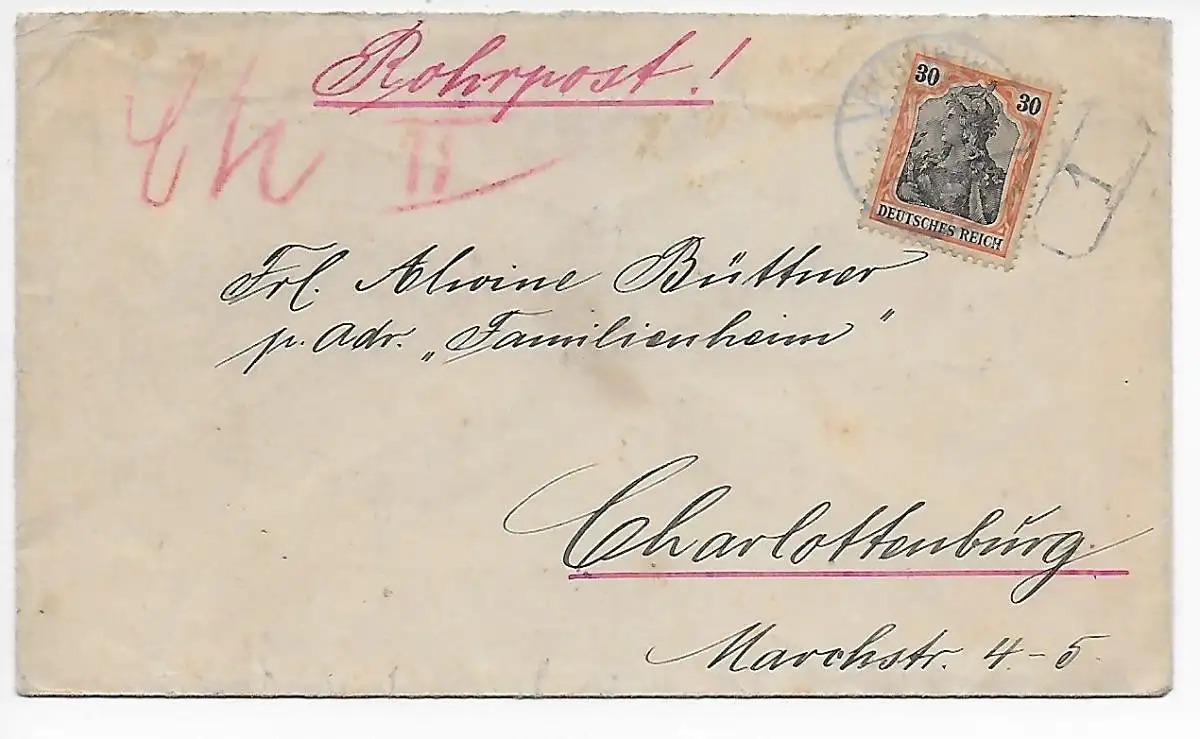 Rohrpost!
Ch II
30 30
DEUTSCHES REICH
Frl. Alwine Büttner
p. Adr. „Familienheim"
Charlottenburg.
Marchstr. 4-5.